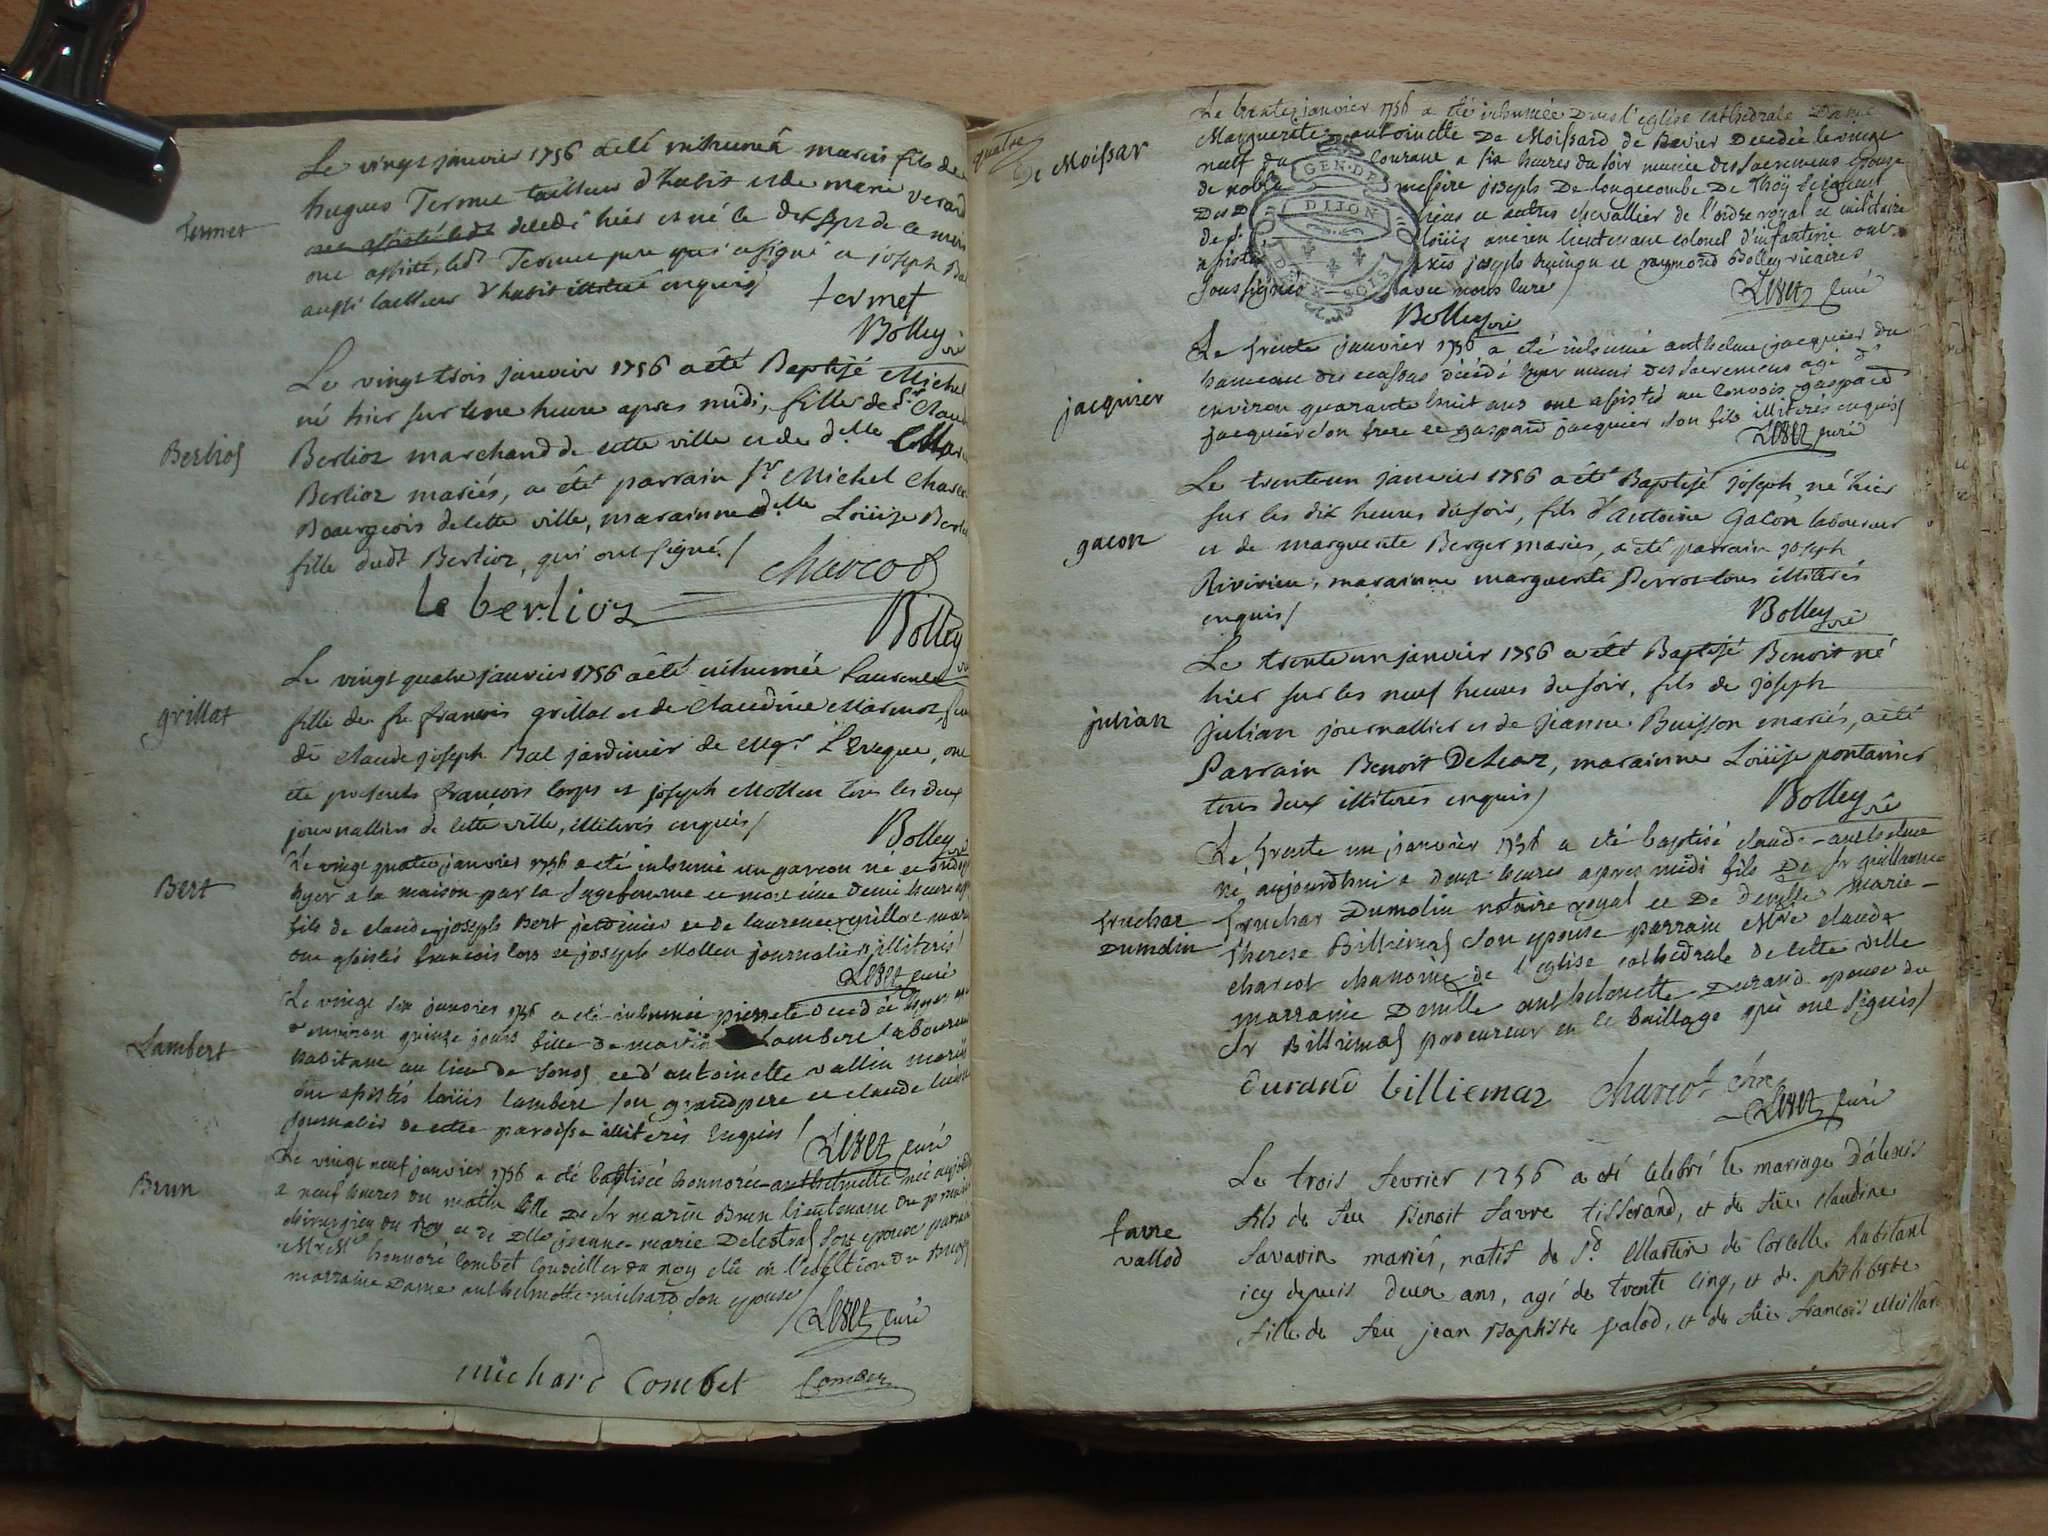 Termet
Le vingt janvier 1756 a été inhumé marin fils de
hugues Termet tailleur d'habit et de marie verand
decedé hier et né le dix sept de ce mois
ont assisté, led. Termet pere qui a signé et joseph
aussi tailleur d'habit enquis/
termet
Bolley vic
Berlioz
Le vingt trois janvier 1756 a été Baptisé Michel
né hier sur une heure apres midi, fils de Sr Claude
Berlioz marchand de cette ville et de d.lle
Berlioz mariés, a été parrain Sr Michel Charcot
Bourgeois de cette ville, marainne d.lle Loüise Berlioz
fille dudt Berlioz, qui ont signé/
charcot
le berlioz
Bolley
grillat
Le vingt quatre janvier 1756 a été inhumée Laurence
fille de fu francois grillat et de Claudine Marmot,
de Claude joseph Bal jardinier de Mgr L'Eveque, ont
été presents françois lorps et joseph Mollen tous les deux
journalliers de cette ville, illiterés enquis/
Bolley vic
Bert
Le vingt quatre janvier 1756 a été inhumé un garcon né et ondoyé
hyer a la maison par la sagefemme et mort une demie heure
fils de claude joseph Bert jardinier et de laurence grillat mariés
ont assistés francois lors et joseph Mollen journaliers illiterés/
Leset curé
Lambert
Le vingt six janvier 1756 a été inhumée pierrete decedée hyer agée
d'environ quinze jours fille de martin Lambert laboureur
habitant au lieu de sonod et d'antoinette vallin mariés
ont assistés loüis lambert son grandpere et claude
journalier de cette paroisse illiterés enquis/
Leset curé
Brun
Le vingt neuf janvier 1756 a été baptisée honnorée anthelmette née aujourd'hui
a neuf heures du matin fille de Sr marin Brun lieutenant du premier
chirurgien du Roy et de Dlle jeanne-marie Delestraz son epouse parrain
Mr Me honnoré Combet Conseiller du roy elu en l'election du Bugey
marraine Dame anthelmette michard son epouse/
Leset curé
michard Combet Combet
quatre
De Moissar
Le trente janvier 1756 a été inhumée dans l'eglise cathedrale Dame
Marguerite antoinette De Moissard de Bavier decedée le vingt
neuf du courant a six heures du soir munie des sacremens epouse
de noble messire joseph De longecombe De Thoÿ seigneur
Des D hieu et autres chevallier de l'ordre royal et militaire
de s. loüis ancien lieutenant colonel d'infanterie ont
assisté joseph et raymond Bolley vicaires
soussignés avec nous curé/
GEN. DE
DIJON
DEUX SOLS
Leset curé
Bolley vic
jacquier
Le trente janvier 1756 a été inhumé anthelme jacquier du
hameau des ecassas décédé hyer muni des sacremens agé d'
environ quarante huit ans ont assistés au convois gaspard
jacquier son frere et gaspard jacquier son fils illiterés enquis/
Leset curé
gacon
Le trente un janvier 1756 a été Baptisé joseph, né hier
sur les dix heures du soir, fils d'Antoine Gacon laboureur
et de marguerite Berger mariés, a été parrain joseph
Rivirieu, marainne marguerite Perroz tous illiterés
enquis/
Bolley vic
julian
Le trente un janvier 1756 a été Baptisé Benoit né
hier sur les neuf heures du soir, fils de joseph
julian journallier et de jeanne Buisson mariés, a été
Parrain Benoit Deleaz, marainne Loüise pontannier
tous deux illiterés enquis/
Bolley vic
fruchar
Dumolin
Le trente un janvier 1756 a été baptisé claude-anthelme
né aujourdhui a deux heures apres midi fils De Sr guillaume
fruchar Dumolin notaire royal et De demlle marie-
therese Billiemaz son epouse parrain Mre claude
charcot chanoine de l'eglise cathedrale de cette ville
marraine Demlle anthelmette Durand epouse du
Sr Billiemaz procureur en ce baillage qui ont signés/
durand billiemaz charcot chne
Leset curé
favre
vallod
Le trois fevrier 1756 a été celebré le mariage d'alexis
fils de feu Benoit favre tisserand, et de füe claudine
Savarin mariés, natif de St. Martin de Corcelle habitant
icy depuis deux ans, agé de trente cinq, et de philiberte
fille de feu jean Baptiste valod, et de füe françoise Meillar